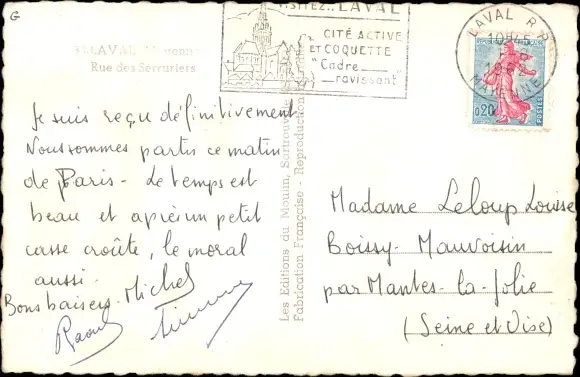 G
VISITEZ.. LAVAL
CITÉ ACTIVE
ET COQUETTE
"Cadre
ravissant"
LAVAL R.P.
10H45
MAYENNE
0,20
POSTES
LAVAL
Rue des Serruriers
Je suis reçu définitivement
Nous sommes partis ce matin
de Paris - Le temps est
beau et après un petit
casse croûte, le moral
aussi.
Bons baisers. Michel
Raoul
Les Editions du Moulin, Sartrouville
Fabrication Française - Reproduction
Madame Leloup Louise
Boissy-Mauvoisin
par Mantes-la-Jolie
(Seine et Oise)